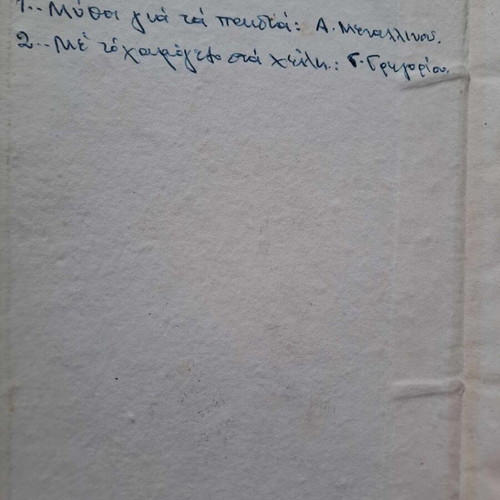 1.. Μύθοι γιά τά παιδιά: Α. Μεταλλινού.
2.. Μέ τό χαμόγελο στά χείλη.: Γ. Γρηγορίου.